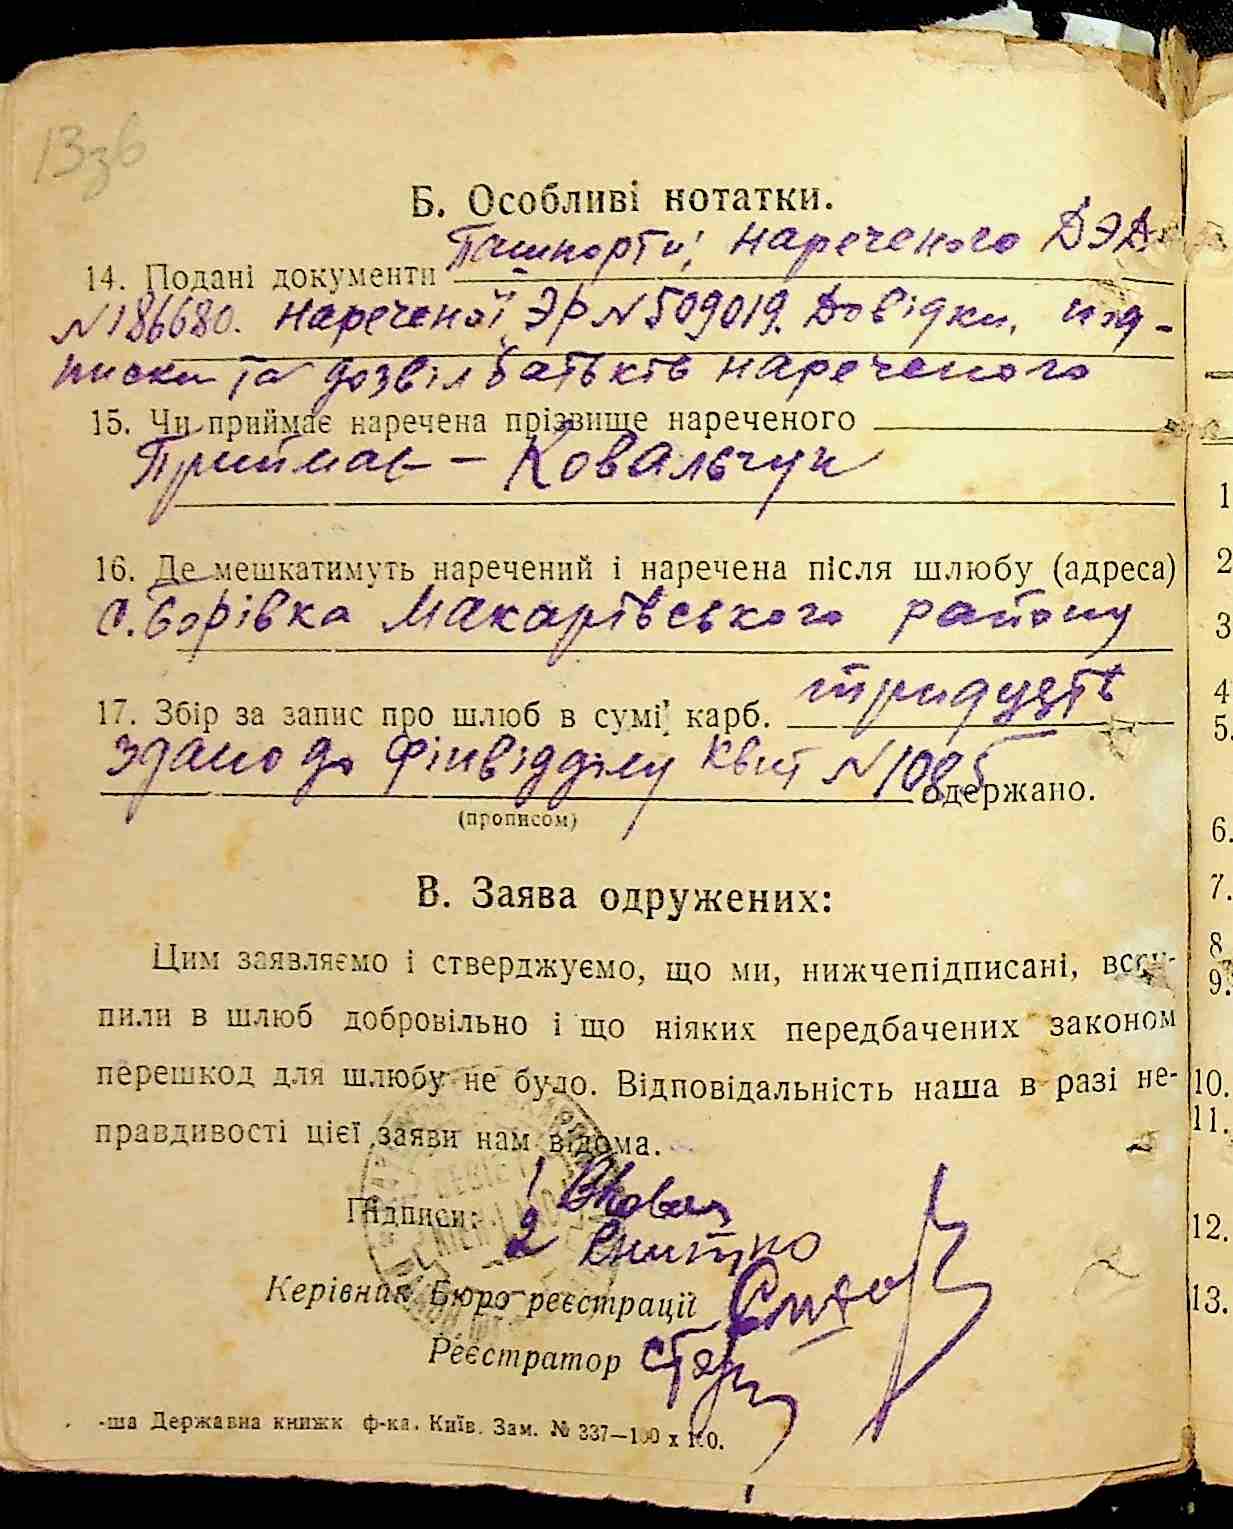 13зв
Б. Особливі нотатки.
14. Подані документи Пашпорти: нареченого ДЭД
№ 186680. нареченої ЭР № 509019. Довідки, під-
писки та дозвіл батьків нареченого
15. Чи приймає наречена прізвище нареченого
Приймає – Ковальчук
16. Де мешкатимуть наречений і наречена після шлюбу (адреса)
с. Борівка Макарівського району
17. Збір за запис про шлюб в сумі карб. тридцять
здано до фінвідділу квит №1085 одержано.
(прописом)
В. Заява одружених:
Цим заявляємо і стверджуємо, що ми, нижчепідписані, всту-
пили в шлюб добровільно і що ніяких передбачених законом
перешкод для шлюбу не було. Відповідальність наша в разі не-
правдивості цієї заяви нам відома.
Підписи: 1
2
Керівник Бюро реєстрації
Реєстратор
-ша Державна книжк ф-ка. Київ. Зам. № 337—100 х 100.
1
2
3
4
5.
6.
7.
8
9.
10.
11.
12.
13.